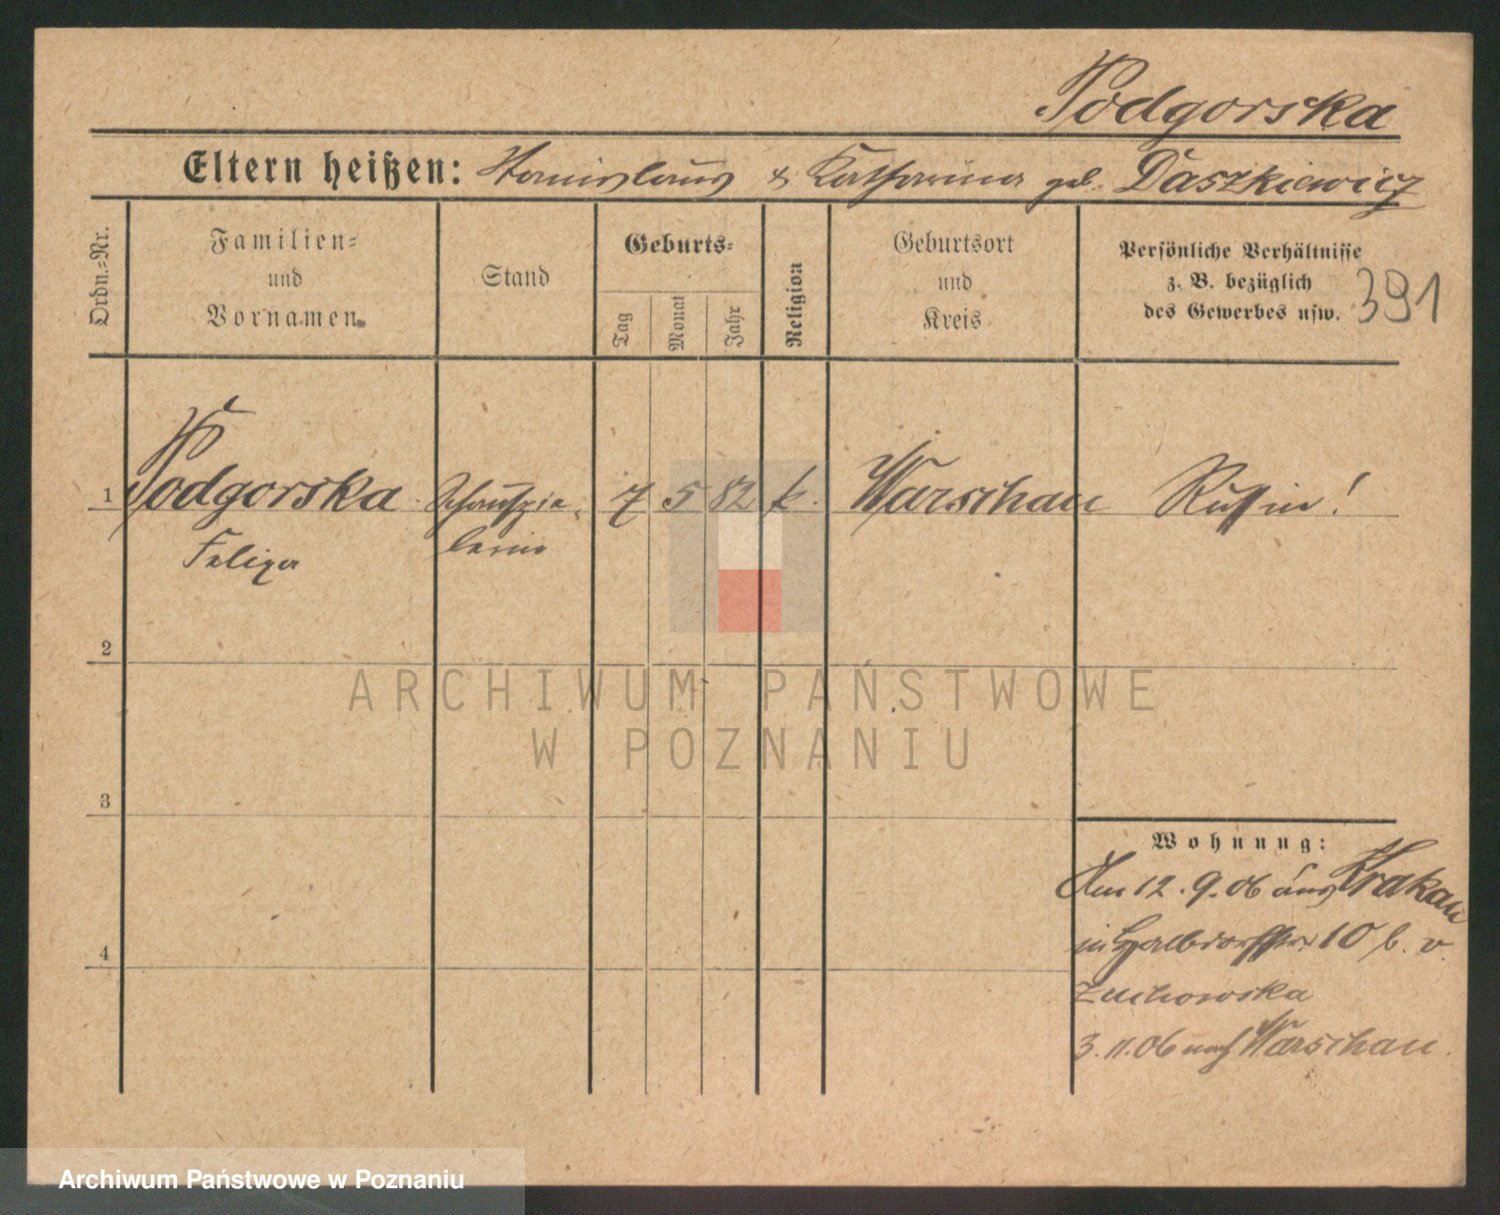 Podgorska
Eltern heißen: Stanislaus & Katharina geb. Daszkiewicz
Ordn.-Nr.
Familien-
und
Vornamen.
Stand
Geburts-
Tag
Monat
Jahr
Religion
Geburtsort
und
Kreis
Persönliche Verhältnisse
z. B. bezüglich
des Gewerbes usw.
391
1 Podgorska Schauspie- 7 5 82 k. Warschau Russin!
Feliza lerin
2
ARCHIWUM PAŃSTWOWE
W POZNANIU
3
Wohnung:
Am 12.9.06 aus Krakau
in Halbdorfstr. 10 b. v.
Zuchowska
4
3.11.06 nach Warschau.
Archiwum Państwowe w Poznaniu